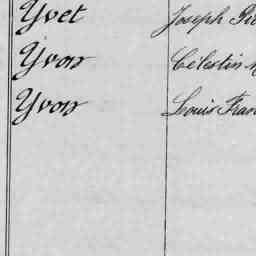 Yvet Joseph
Yvon Célestin
Yvon Louis